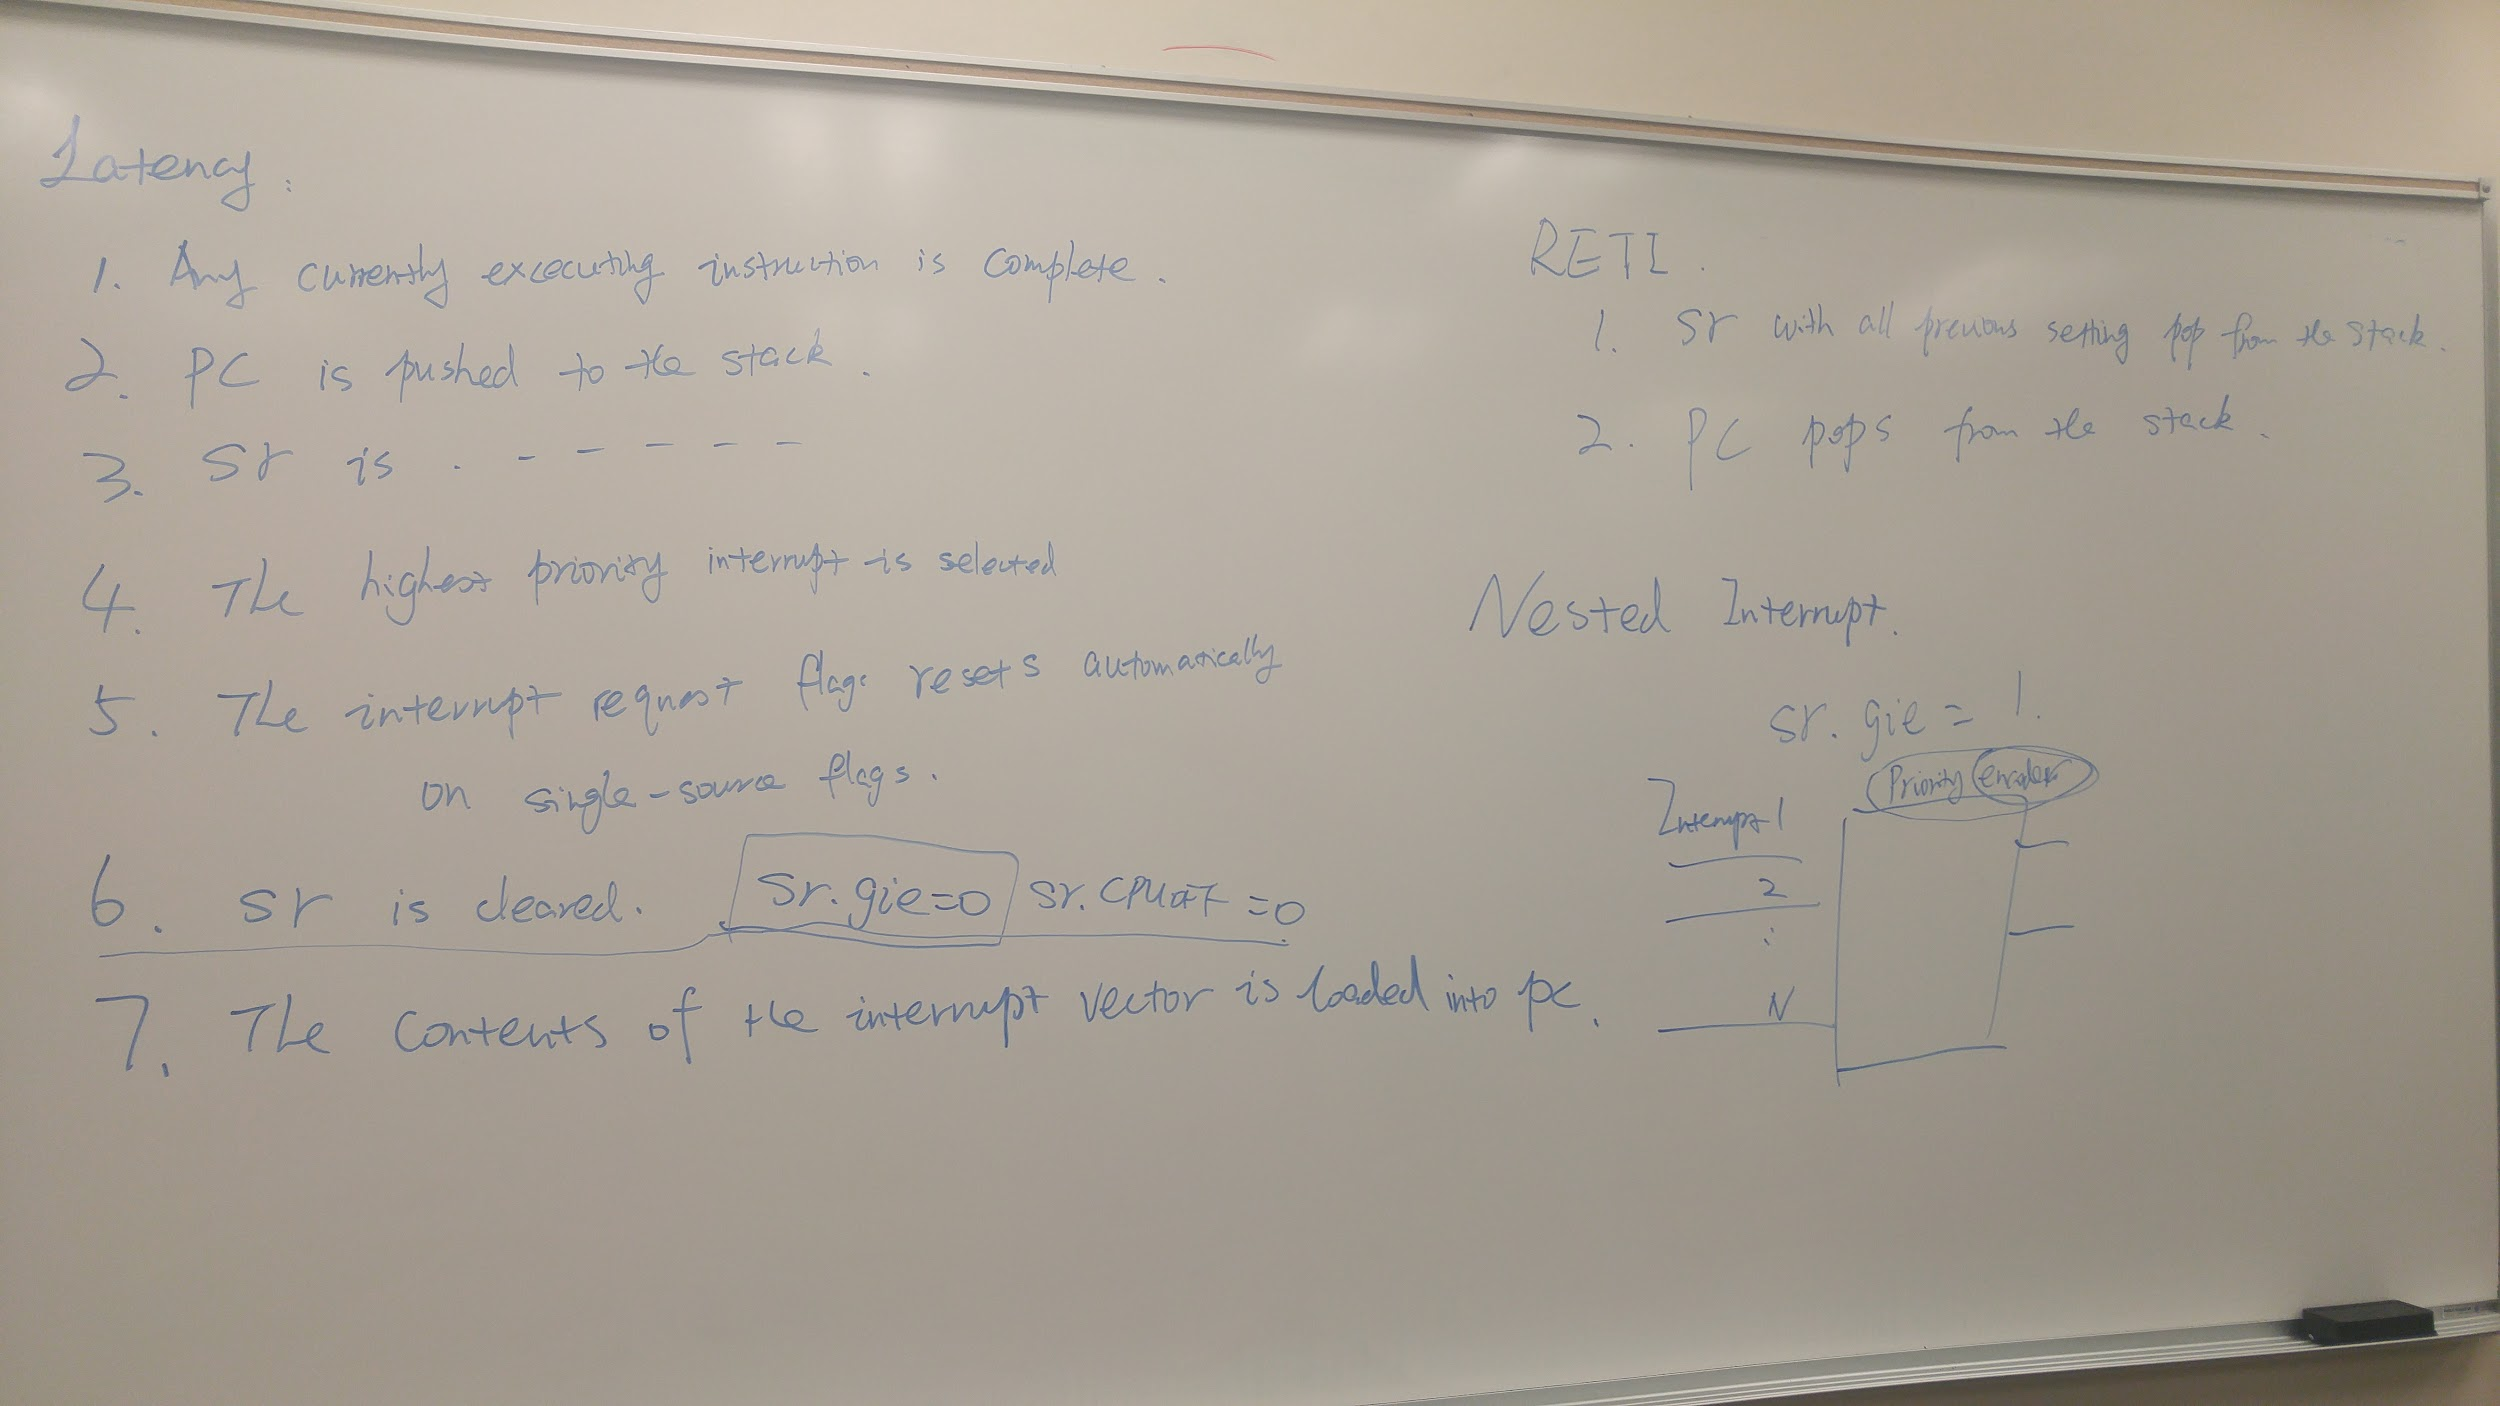 Latency:
1. Any currently excecuting instruction is complete.
2. PC is pushed to the stack.
3. Sr is . - - - - -
4. The highest priority interrupt is selected
5. The interrupt request flags resets automatically
on single-source flags.
6. Sr is cleared. Sr.gie=0 Sr.CPUOFF=0
7. The contents of the interrupt vector is loaded into pc.
RETI.
1. Sr with all previous setting pop from the stack.
2. PC pops from the stack.
Nested Interrupt.
Sr.gie = 1.
Priority encoder
Interrupt 1
2
:
N